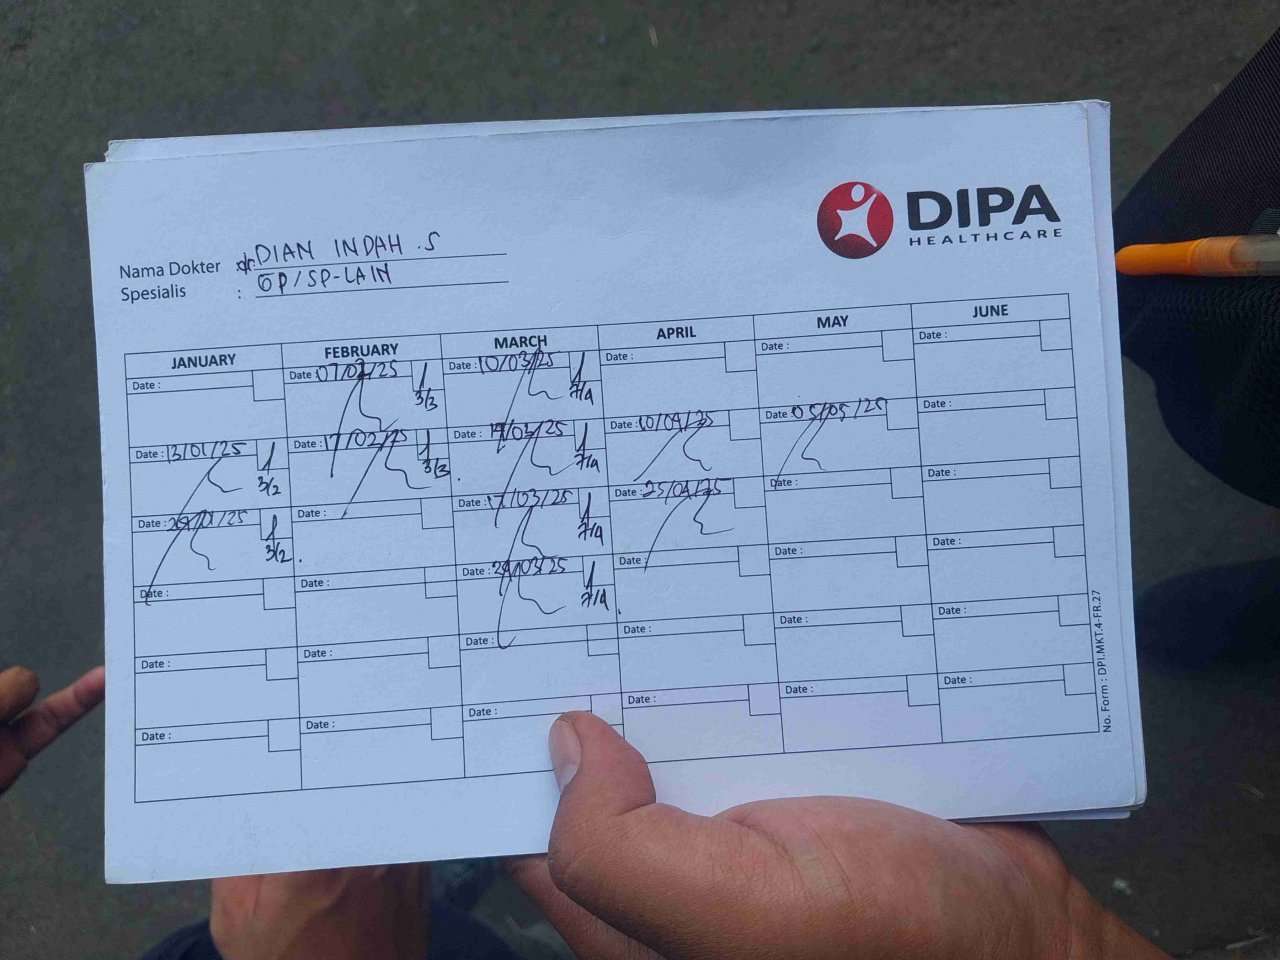 DIPA
HEALTHCARE
Nama Dokter : dr. DIAN INDAH . S
Spesialis : GP/SP-LAIN
JANUARY FEBRUARY MARCH APRIL MAY JUNE
Date : Date : 07/02/25 3/3 Date : 10/03/25 7/4 Date : Date : Date :
Date : 13/01/25 3/2 Date : 17/02/25 3/3 Date : 03/25 7/4 Date : 10/04/25 Date : 05/05/25 Date :
Date : 01/25 3/2 Date : Date : 17/03/25 7/4 Date : 25/04/25 Date : Date :
Date : Date : Date : 24/03/25 7/4 Date : Date : Date :
Date : Date : Date : Date : Date : Date :
Date : Date : Date : Date : Date : Date :
No. Form : DPI.MKT.4-FR.27